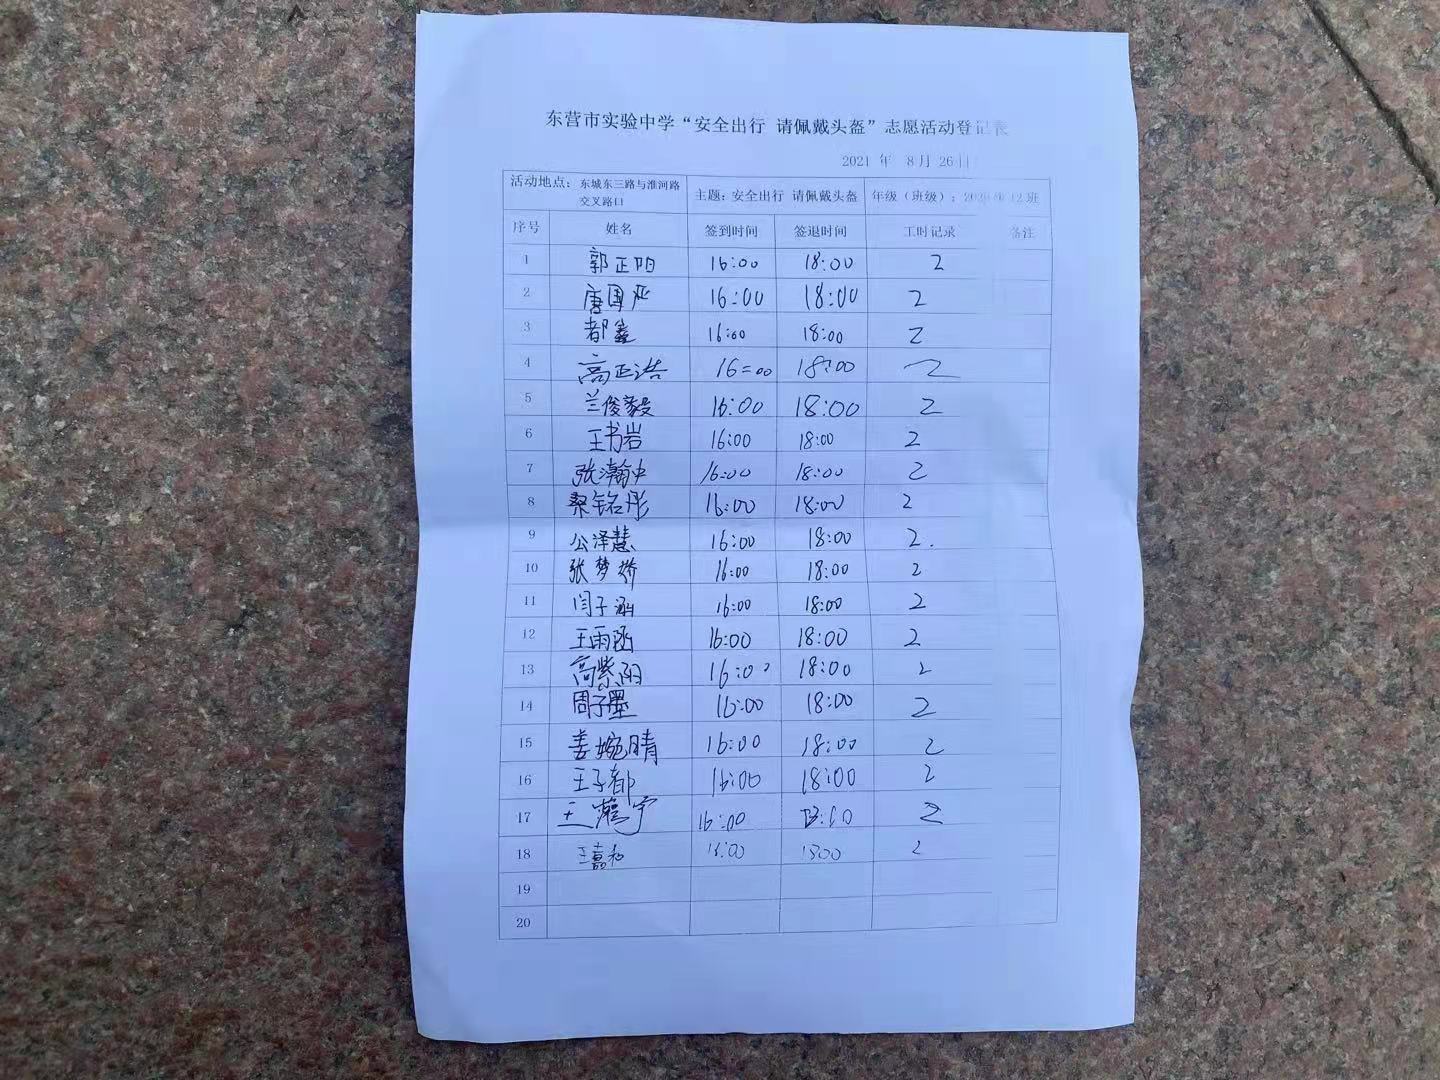 东营市实验中学“安全出行 请佩戴头盔”志愿活动登记表
2021 年 8月 26日
活动地点：东城东三路与淮河路交叉路口 主题：安全出行 请佩戴头盔 年级（班级）：2020级12班
序号 姓名 签到时间 签退时间 工时记录 备注
1 郭正阳 16:00 18:00 2
2 唐国严 16:00 18:00 2
3 都鑫 16:00 18:00 2
4 高正浩 16:00 18:00 2
5 兰俊毅 16:00 18:00 2
6 王书岩 16:00 18:00 2
7 张瀚中 16:00 18:00 2
8 桑铭彤 16:00 18:00 2
9 公泽慧 16:00 18:00 2.
10 张梦娇 16:00 18:00 2
11 闫子涵 16:00 18:00 2
12 王雨函 16:00 18:00 2
13 高紫阳 16:00 18:00 2
14 周子墨 16:00 18:00 2
15 姜婉晴 16:00 18:00 2
16 王子都 16:00 18:00 2
17 王宇 16:00 2
18 王嘉和 16:00 1800 2
19
20